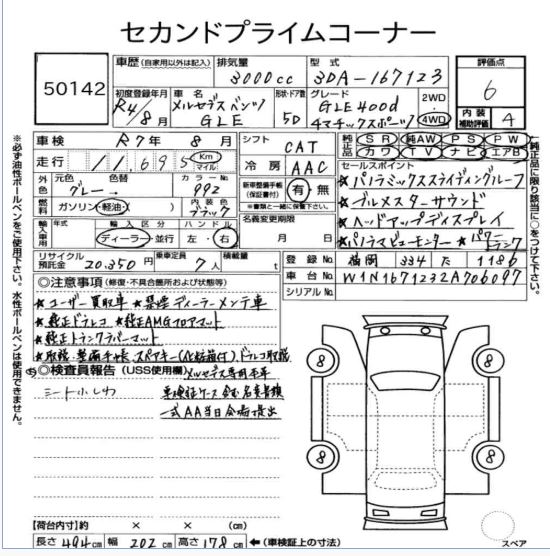 セカンドプライムコーナー
50142
車歴 (自家用以外は記入) 排気量 3000cc 型式 3DA-167123
評価点 6
内装補助評価 4
初度登録年月 R4/8月
車名 メルセデスベンツ GLE
形状・ドア数 5D
グレード GLE400d 4マチックスポーツ
2WD 4WD
車検 R7年 8月
シフト CAT
純正品 SR 純AW PS PW カワ TV ナビ エアB
走行 11,695 Km マイル
冷房 AAC
セールスポイント
外色 元色 グレー 色替 → カラーNo 992
新車整備手帳(保証書付) 有・無
※書類と一緒に保管下さい
★パノラミックスライディングルーフ
燃料 ガソリン・軽油・( ) 内装色 ブラック
★ブルメスターサウンド
名義変更期限 月 日
★ヘッドアップディスプレイ
輸入車用 年式 輸入区分 ハンドル
ディーラー・並行 左・右
★パノラマビューモニター ★パワートランク
リサイクル預託金 20,350円 乗車定員 7人 積載量 t
登録No 福岡 334 た 1186
車台No W1N1671232A706097
シリアルNo
◎注意事項 (修復・不具合箇所および状態等)
★ユーザー買取車 ★禁煙ディーラーメンテ車
★純正ドラレコ ★純正AMGフロアマット
★純正トランクラバーマット
★取説・整備手帳、スペアキー(化粧箱付)ドラレコ取説
◎検査員報告 (USS使用欄) メルセデス専用
シート小しわ
車検証ケース含む名変書類
一式AA当日会場提出
8
8
8
8
【荷台内寸】約 × × (cm)
長さ 494cm 幅 202cm 高さ 178cm ←(車検証上の寸法)
スペア
※必ず油性ボールペンをご使用下さい。水性ボールペンは使用できません。
純正品に限り該当に○をつけて下さい。